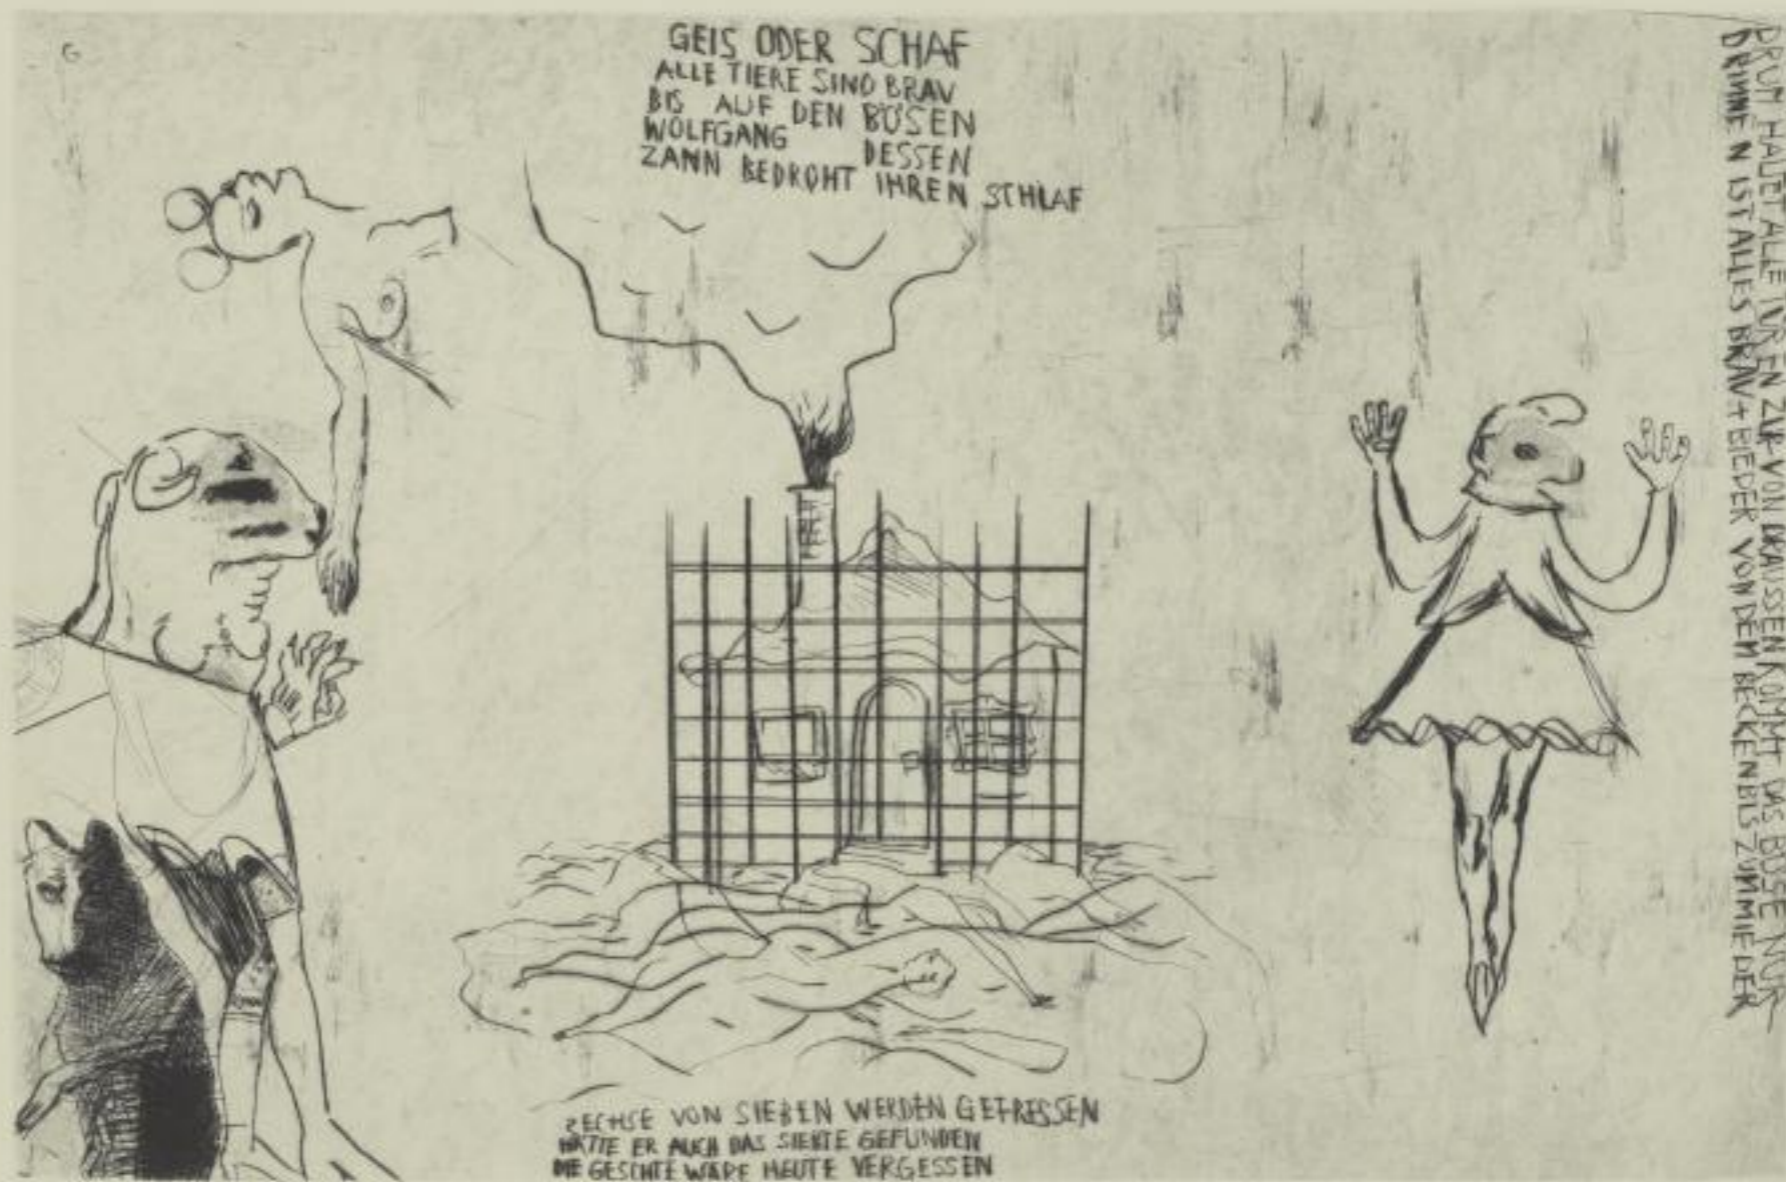 G
GEIS ODER SCHAF
ALLE TIERE SIND BRAV
BIS AUF DEN BÖSEN
WOLFGANG DESSEN
ZANN BEDROHT IHREN SCHLAF
DRUM HALTET ALLE TÜREN ZU VON DRAUSSEN KOMMT DAS BÖSE NUR
DRINNEN IST ALLES BRAV + BIEDER VON DEM BECKEN BIS ZUM MIEDER
SECHSE VON SIEBEN WERDEN GEFRESSEN
HÄTTE ER AUCH DAS SIEBTE GEFUNDEN
DIE GESCHTE WÄRE HEUTE VERGESSEN